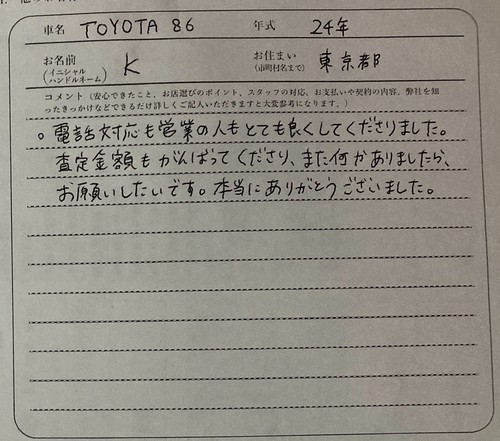 車名 TOYOTA 86 年式 24年
お名前 (イニシャル ハンドルネーム) K お住まい (市町村名まで) 東京都
コメント (安心できたこと、お店選びのポイント、スタッフの対応、お支払いや契約の内容、弊社を知
ったきっかけなどできるだけ詳しくご記入いただきますと大変参考になります。)
。電話対応も営業の人もとても良くしてくださりました。
査定金額もがんばってくださり、また何かありましたら、
お願いしたいです。本当にありがとうございました。